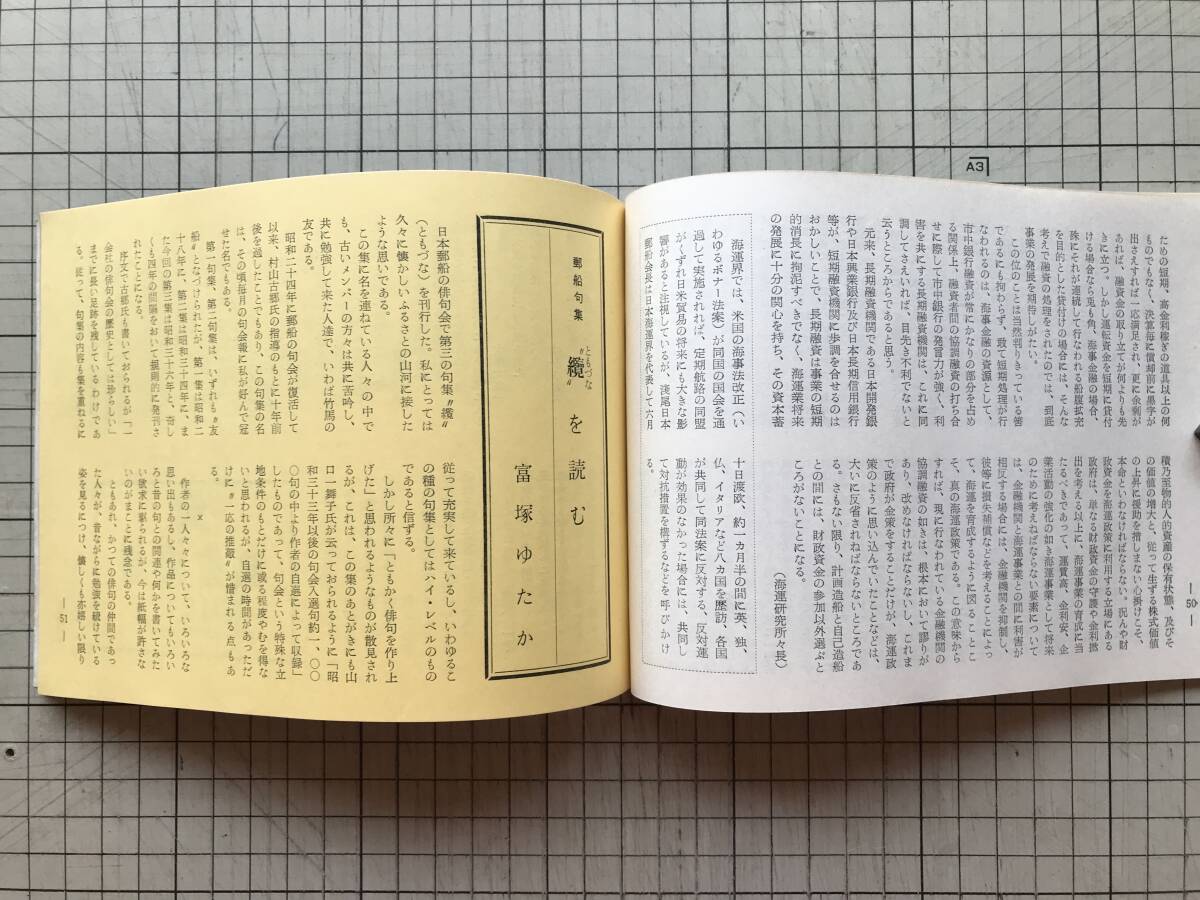 A3
ための短期、高金利稼ぎの道具以上の何
ものでもなく、決算毎に償却前に黒字が
出さえすれば一応満足され、更に余剰が
あれば、融資金の取り立てが何よりも先
きに立つ。しかし運転資金を短期に貸付
ける場合なら兎も角、海事金融の場合、
殊にそれが連続して行なわれる船腹拡充
を目的とした貸付けの場合には、そんな
考えで融資の処理をされたのでは、到底
事業の発展を期待しがたい。
この位のことは当然判りきっている筈
であるにも拘わらず、敢て短期処理が行
なわれるのは、海事金融の資源として、
市中銀行融資が常にかなりの部分を占め
る関係上、融資者間の協調融資の打ち合
せに際して市中銀行の発言力が強く、利
害を共にする長期融資機関は、これに同
調してさえいれば、目先き不利でないと
云うところからであると思う。
元来、長期融資機関である日本開発銀
行や日本興業銀行及び日本長期信用銀行
等が、短期融資機関に歩調を合せるのは
おかしいことで、長期融資は事業の短期
的消長に拘泥すべきでなく、海運業将来
の発展に十分の関心を持ち、その資本蓄
積乃至物的人的資産の保有状態、及びそ
の価値の増大と、従って生ずる株式価値
の上昇に援助を惜しまない心掛けこそ、
本命といわなければならない。況んや財
政資金を海運政策に利用する立場にある
政府は、単なる財政資金の守護や金利捻
出を考える以上に、海運事業の育成に当
たるべきであって、運賃高、金利安、企
業活動の強化の如き海運事業として将来
のために考えねばならない要素について
は、金融機関と海運事業との間に利害が
相反する場合には、金融機関を抑制し、
彼等に損失補償などを考えることによっ
て、海運を育成するように図ることこ
そ、真の海運政策である。この意味から
すれば、現に行なわれている金融機関の
協調融資の如きは、根本において謬りが
あり、改めなければならないし、これま
で政府が金策をすることだけが、海運政
策のように思い込んでいたことなどは、
大いに反省されねばならないところであ
る。さもない限り、計画造船と自己造船
との間には、財政資金の参加以外選ぶと
ころがないことになる。
（海運研究所々長）
海運界では、米国の海事法改正（い
わゆるボナー法案）が同国の国会を通
過して実施されれば、定期航路の同盟
がくずれ日米貿易の将来にも大きな影
響があると注視しているが、浅尾日本
郵船会長は日本海運界を代表して六月
十日渡欧、約一ヵ月半の間に英、独、
仏、イタリアなど八ヵ国を歴訪、各国
が共同して同法案に反対する、反対運
動が効果のなかった場合には、共同し
て対抗措置を構ずるなどを呼びかけ
る。
―50―
郵船句集
〝纜〟を読む
ともづな
富塚ゆたか
日本郵船の俳句会で第三の句集〝纜〟
（ともづな）を刊行した。私にとっては
久々に懐かしいふるさとの山河に接した
ような思いである。
この集に名を連ねている人々の中で
も、古いメンバーの方々は共に苦吟し、
共に勉強して来た人達で、いわば竹馬の
友である。
昭和二十四年に郵船の句会が復活して
以来、村山古郷氏の指導のもとに十年前
後を過したことでもあり、この句集の名
は、その頃毎月の句会報に私が好んで冠
せた名でもある。
第一句集、第二句集は、いずれも〝友
船〟となづけられたが、第一集は昭和二
十八年に、第二集は昭和三十四年に、ま
た今回の第三集は昭和三十六年と、奇し
くも四年の間隔をおいて規則的に発刊さ
れたことになる。
序文で古郷氏も書いておられるが「一
会社の俳句会の歴史としては珍らしい」
までに長い足跡を残しているわけであ
る。従って、句集の内容も集を重ねるに
従って充実して来ているし、いわゆるこ
の種の句集としてはハイ・レベルのもの
であると信ずる。
しかし所々に「ともかく俳句を作り上
げた」と思われるようなものが散見され
るが、これは、この集のあとがきにも山
口一舞子氏が云っておられるように「昭
和三十三年以後の句会入選句約一、〇〇
〇句の中より作者の自選によって収録」
したものであって、句会という特殊な立
地条件のもとだけに或る程度やむを得な
いと思われるが、自選の時間があっただ
けに〝一応の推敲〟が惜まれる点もあ
る。
×
作者の一人々々について、いろいろな
思い出もあるし、作品についてもいろい
ろと昔の句との関連や何かを書いてみた
い欲求に駆られるが、今は紙幅が許さな
いのがまことに残念である。
ともあれ、かつての俳句の仲間であっ
た人々が、昔ながらに勉強を続けている
姿を見るにつけ、懐しくも亦嬉しい限り
―51―